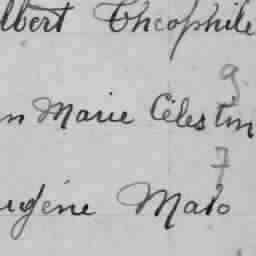 lbert Théophile
9
n Marie Célestin
7
ugène Malo